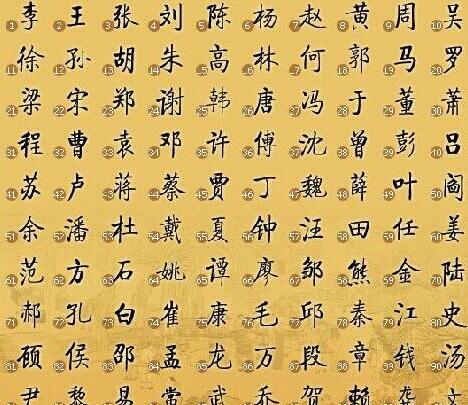 1 李 2 王 3 张 4 刘 5 陈 6 杨 7 赵 8 黄 9 周 10 吴
11 徐 12 孙 13 胡 14 朱 15 高 16 林 17 何 18 郭 19 马 20 罗
21 梁 22 宋 23 郑 24 谢 25 韩 26 唐 27 冯 28 于 29 董 30 萧
31 程 32 曹 33 袁 34 邓 35 许 36 傅 37 沈 38 曾 39 彭 40 吕
41 苏 42 卢 43 蒋 44 蔡 45 贾 46 丁 47 魏 48 薛 49 叶 50 阎
51 余 52 潘 53 杜 54 戴 55 夏 56 钟 57 汪 58 田 59 任 60 姜
61 范 62 方 63 石 64 姚 65 谭 66 廖 67 邹 68 熊 69 金 70 陆
71 郝 72 孔 73 白 74 崔 75 康 76 毛 77 邱 78 秦 79 江 80 史
81 顾 82 侯 83 邵 84 孟 85 龙 86 万 87 段 88 章 89 钱 90 汤
尹 黎 易 常 武 乔 贺 赖 龚 文